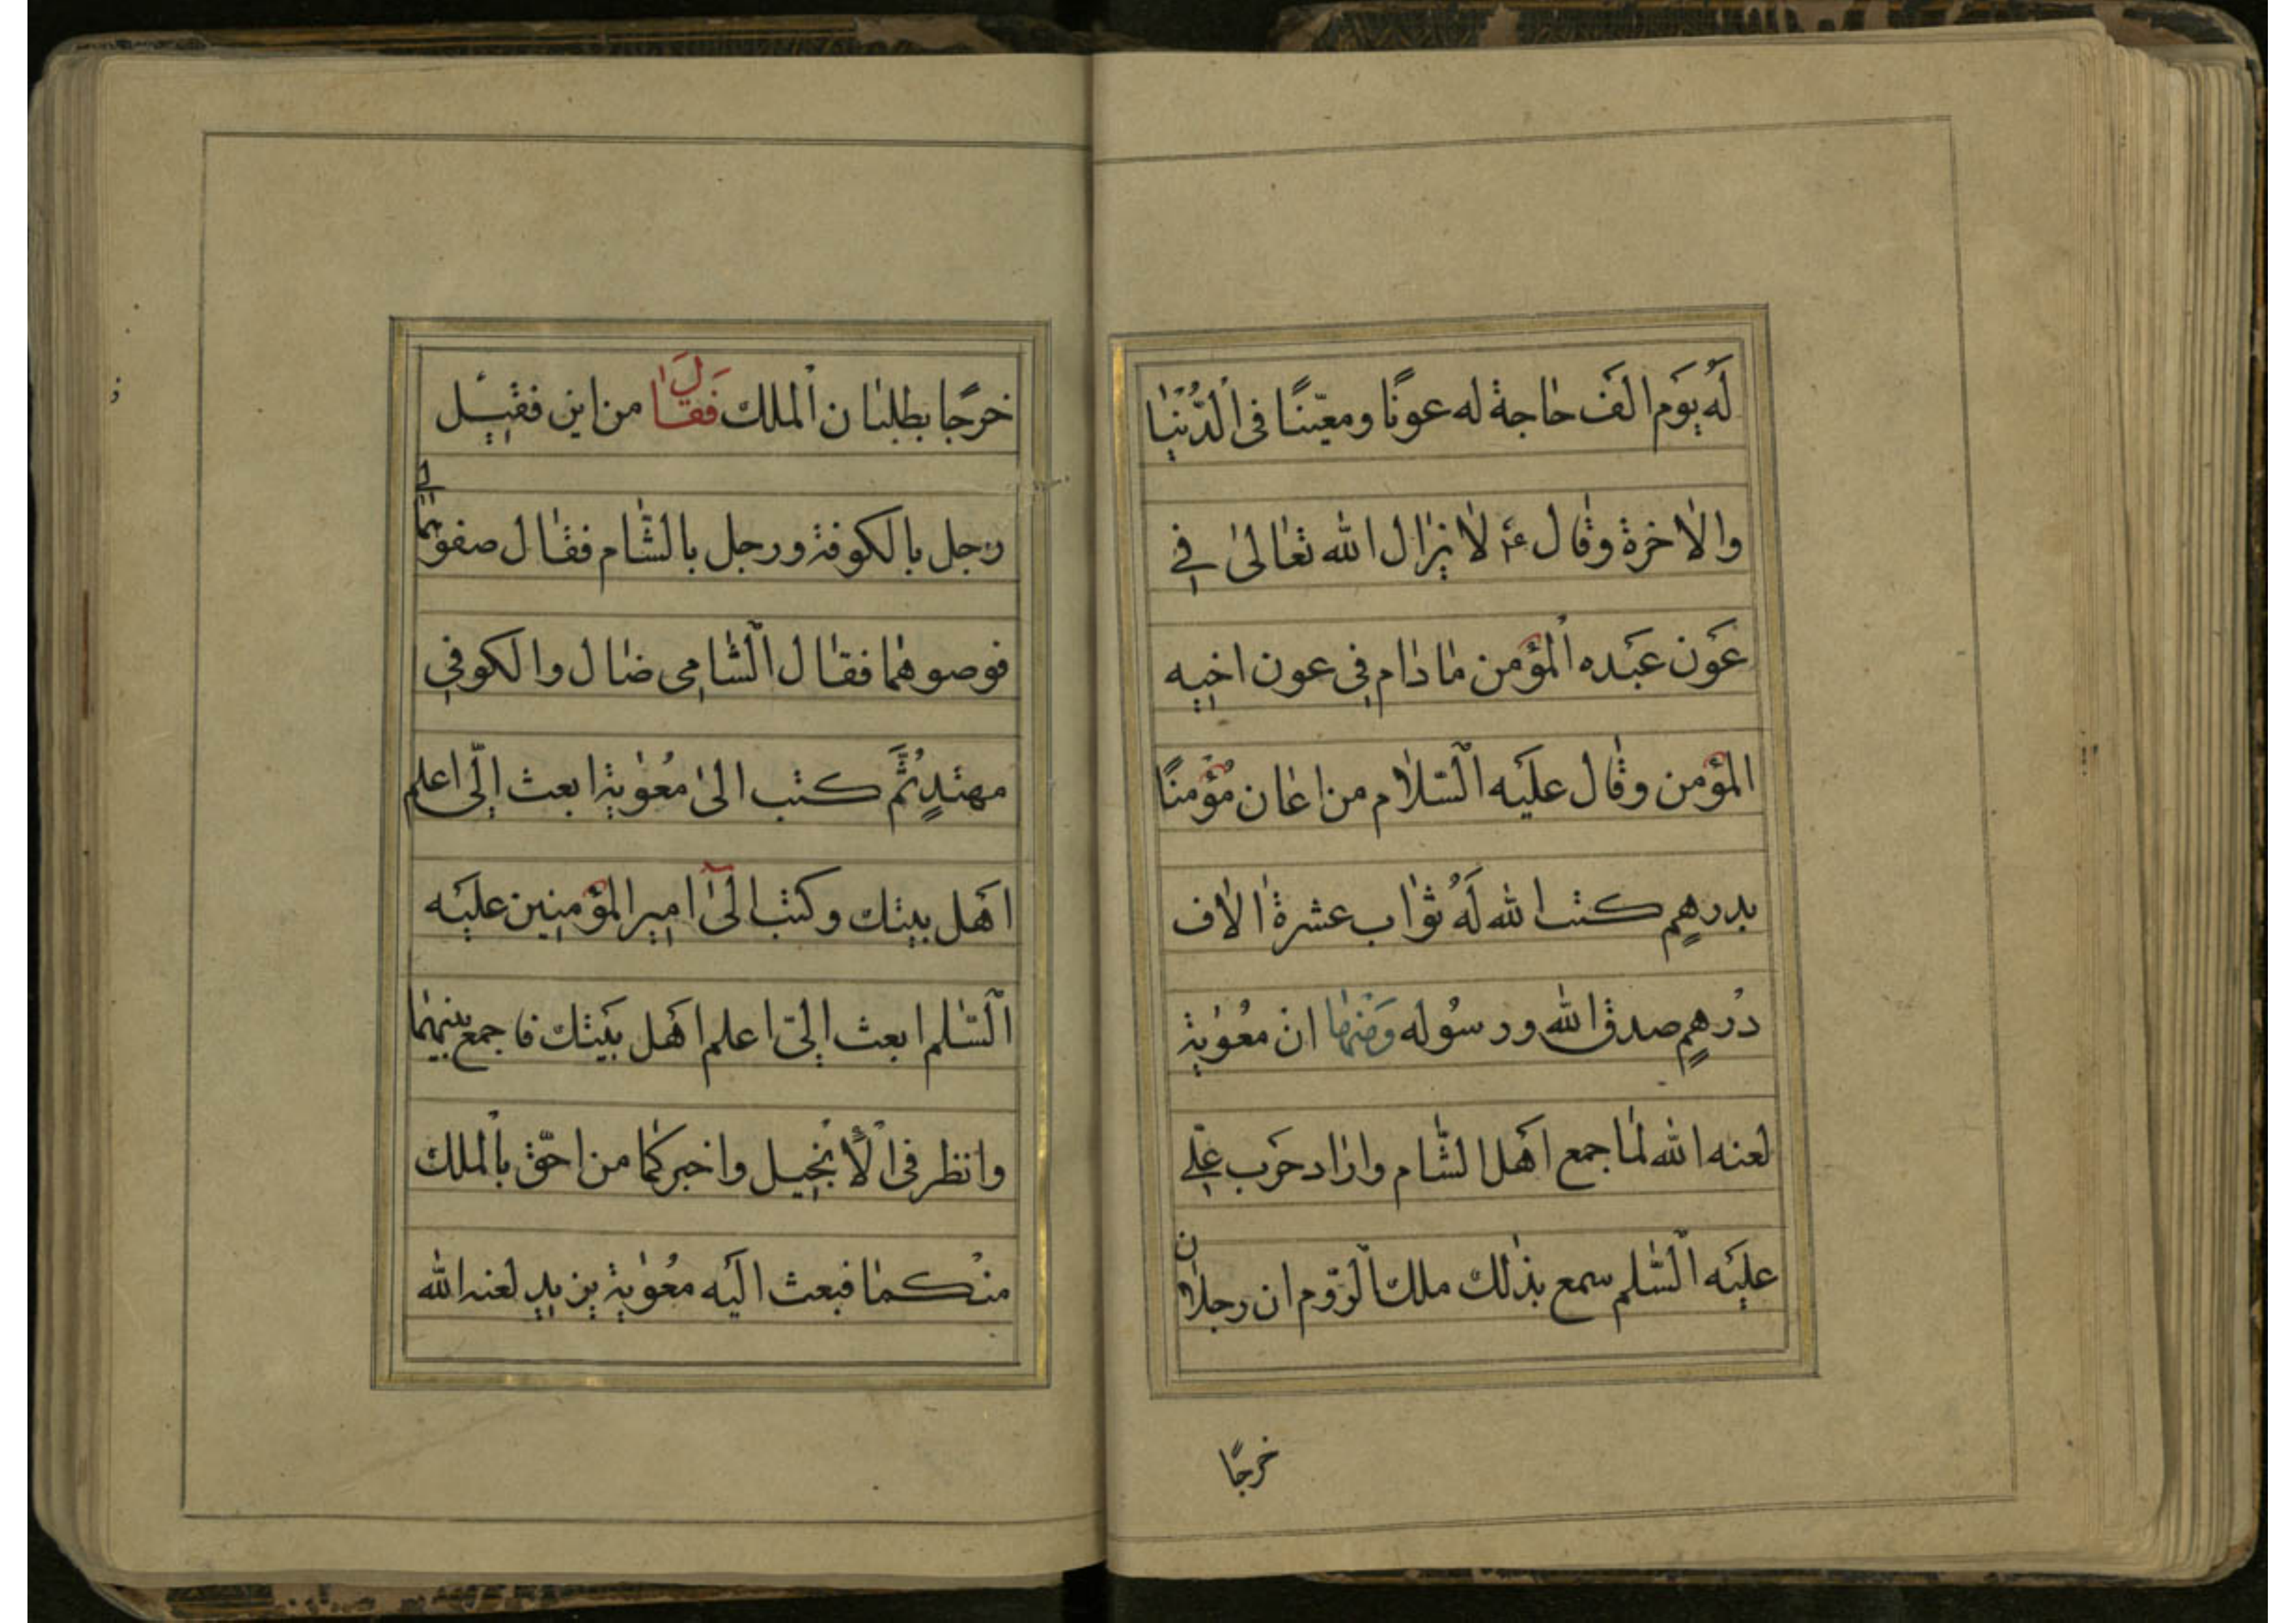 لَهُ يَوم الَف حاجة له عونًا ومعيّنًا فى الدُّنيا
والاخرة وقال ع‍ لا يزال الله تعالى في
عَون عَبَده المؤمن ما دام فِى عون اخِيه
المؤمن وقال عليَه السّلام من اعان مُؤمنًا
بدرهمٍ كتب الله لَهُ ثواب عشرة الاف
دُرهمٍ صدق الله ورسُوله وَمنها ان معُوية
لعنه الله لما جمع اهَل الشّام واراد حَرب علِّي
عليَه السّلم سمع بذلك ملك الرّوم ان رجلان
خرجًا
خرجًا يطلبان الملك فَقالَ من اين فقيِل
رجل بالكوفة ورجل بالشّام فقال صفوهما لي
فوصوهما فقال الشّامِى ضال والكوفِي
مهتدٍ ثُمَّ كتب الى مُعوية ابعث اِلَى اعلم
اهَل بيتك وكتب الَى امِير المؤمنِين عليَه
السّلم ابعث اِلىّ اعلم اهَل بَيتك فاجمع بينهما
وانظر فى الْأنجِيل واخبركما من احّق بالملك
منْكما فبعث اليَه معُوية يزيد لعنه الله